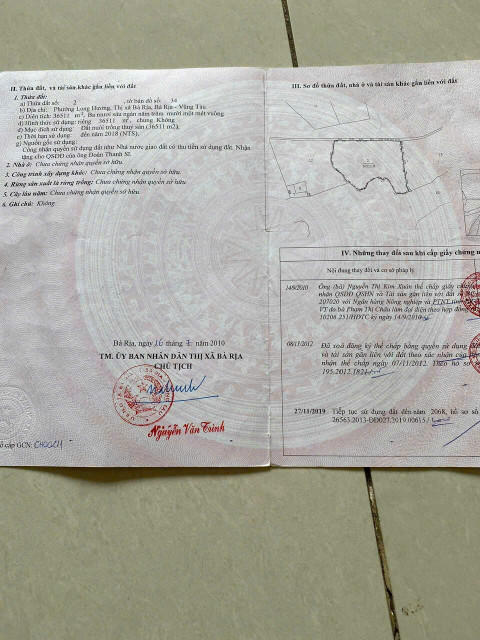 II. Thửa đất, và tài sản khác gắn liền với đất
1. Thửa đất:
a) Thửa đất số: 2 tờ bản đồ số: 34
b) Địa chỉ: Phường Long Hương, Thị xã Bà Rịa, Bà Rịa - Vũng Tàu
c) Diện tích: 36511 m², Ba mươi sáu ngàn năm trăm mười một mét vuông
d) Hình thức sử dụng: riêng 36511 m², chung Không
đ) Mục đích sử dụng: Đất nuôi trồng thuỷ sản (36511 m2),
e) Thời hạn sử dụng: đến năm 2018 (NTS),
g) Nguồn gốc sử dụng:
Công nhận quyền sử dụng đất như Nhà nước giao đất có thu tiền sử dụng đất. Nhận
tặng cho QSDĐ của ông Đoàn Thanh Sĩ.
2. Nhà ở: Chưa chứng nhận quyền sở hữu.
3. Công trình xây dựng khác: Chưa chứng nhận quyền sở hữu.
4. Rừng sản xuất là rừng trồng: Chưa chứng nhận quyền sở hữu
5. Cây lâu năm: Chưa chứng nhận quyền sở hữu.
6. Ghi chú: Không.
Bà Rịa, ngày 16 tháng 7 năm 2010
TM. ỦY BAN NHÂN DÂN THỊ XÃ BÀ RỊA
CHỦ TỊCH
Nguyễn Văn Trình
số cấp GCN:
III. Sơ đồ thửa đất, nhà ở và tài sản khác gắn liền với đất
IV. Những thay đổi sau khi cấp giấy chứng
Nội dung thay đổi và cơ sở pháp lý
14/9/2010 Ông (bà) Nguyễn Thị Kim Xuân thế chấp giấy
nhận QSDĐ QSHN và Tài sản gắn liền với đất số
207020 với Ngân hàng Nông nghiệp và PTNT
VT do bà Phạm Thị Châu làm đại diện theo hợp đồng
10208.251/HĐTC ký ngày 14/9/2010
08/11/2012 Đã xoá đăng ký thế chấp bằng quyền sử dụng đất
và tài sản gắn liền với đất theo xác nhận của
nhận thế chấp ngày 07/11/2012. Theo hồ sơ
195.2012.1821
27/11/2019 Tiếp tục sử dụng đất đến năm 2068, hồ sơ số
26563.2013-ĐĐ027.2019.00615